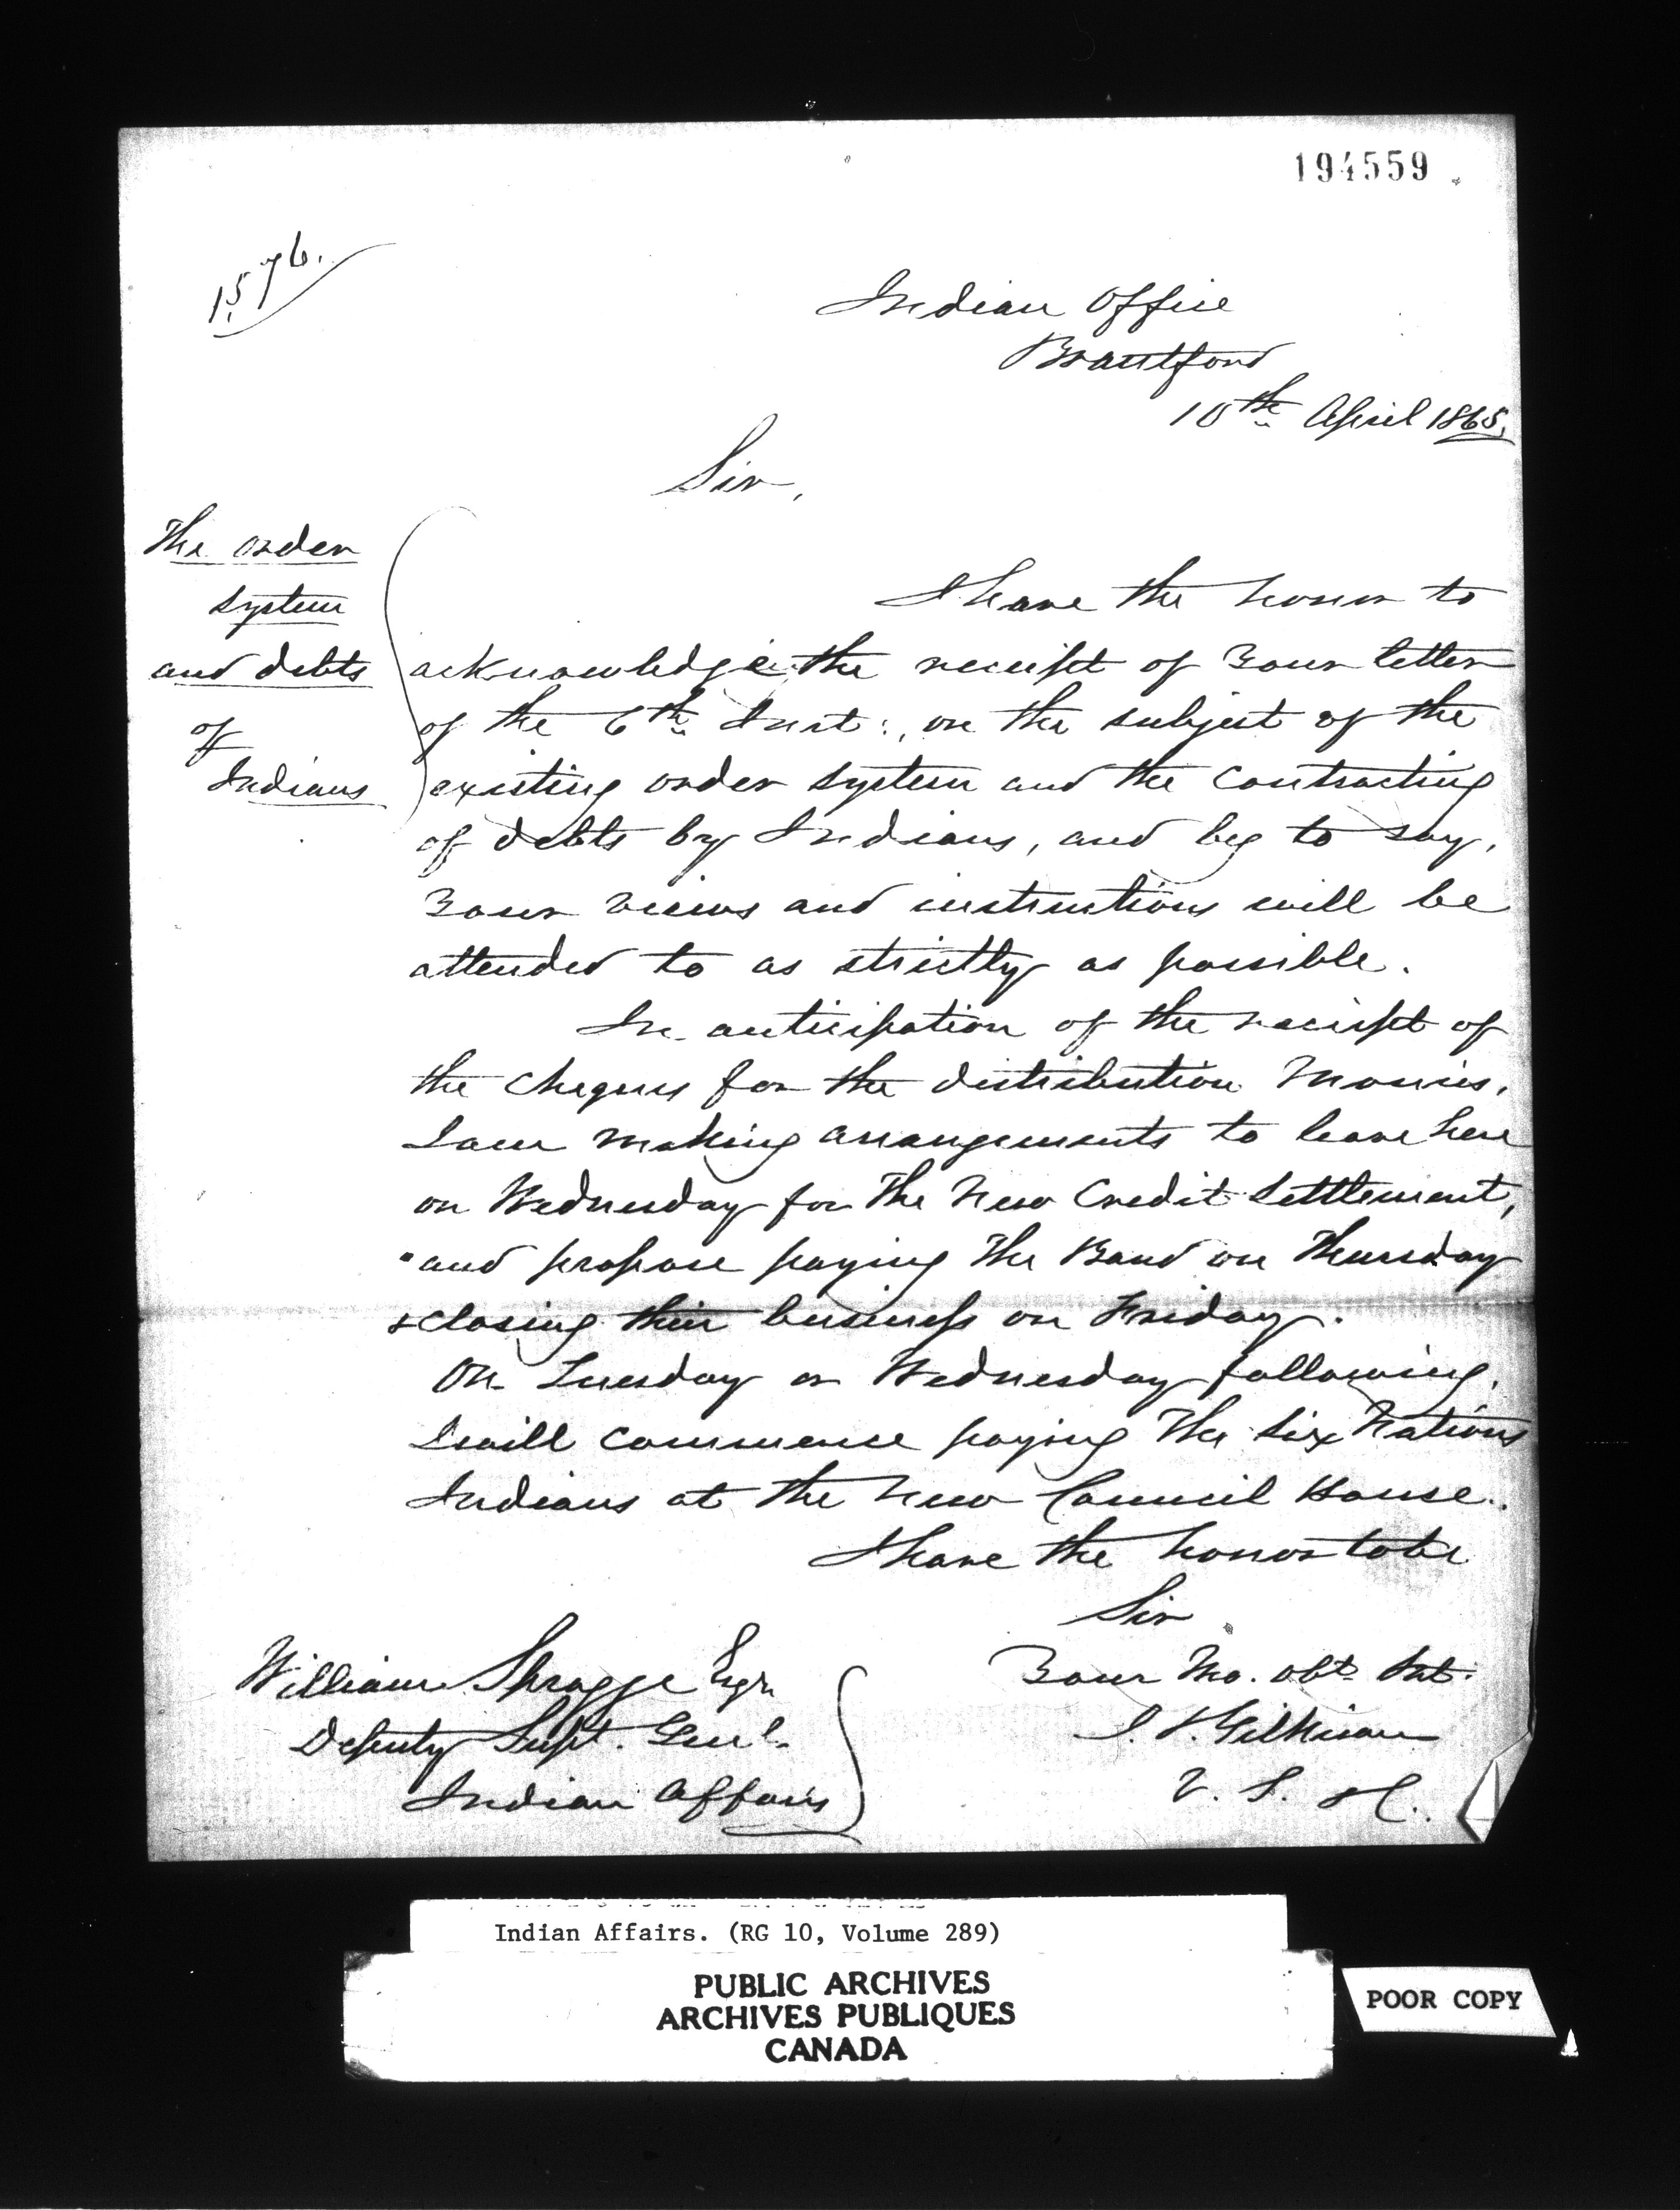 194559
1576.
Indian Office
Brantford
10th April 1865.
Sir,
The order
system
and debts
of
Indians
I have the honor to
acknowledge the receipt of Your letter
of the 6th Inst:, on the subject of the
existing order system and the contracting
of debts by Indians, and beg to say,
Your views and instructions will be
attended to as strictly as possible.
In anticipation of the receipt of
the cheques for the distribution Monies,
I am making arrangements to leave here
on Wednesday for The New Credit Settlement,
and propose paying The Band on Thursday
& closing their business on Friday.
On Tuesday or Wednesday following,
I will commence paying The Six Nations
Indians at the new Council House.
I have the honor to be
Sir
Your Mo. obt. Svt.
J. T. Gilkison
V. S. &c.
William Spragge Esqr.
Deputy Supt. Genl.
Indian Affairs
Indian Affairs. (RG 10, Volume 289)
PUBLIC ARCHIVES
ARCHIVES PUBLIQUES
CANADA
POOR COPY